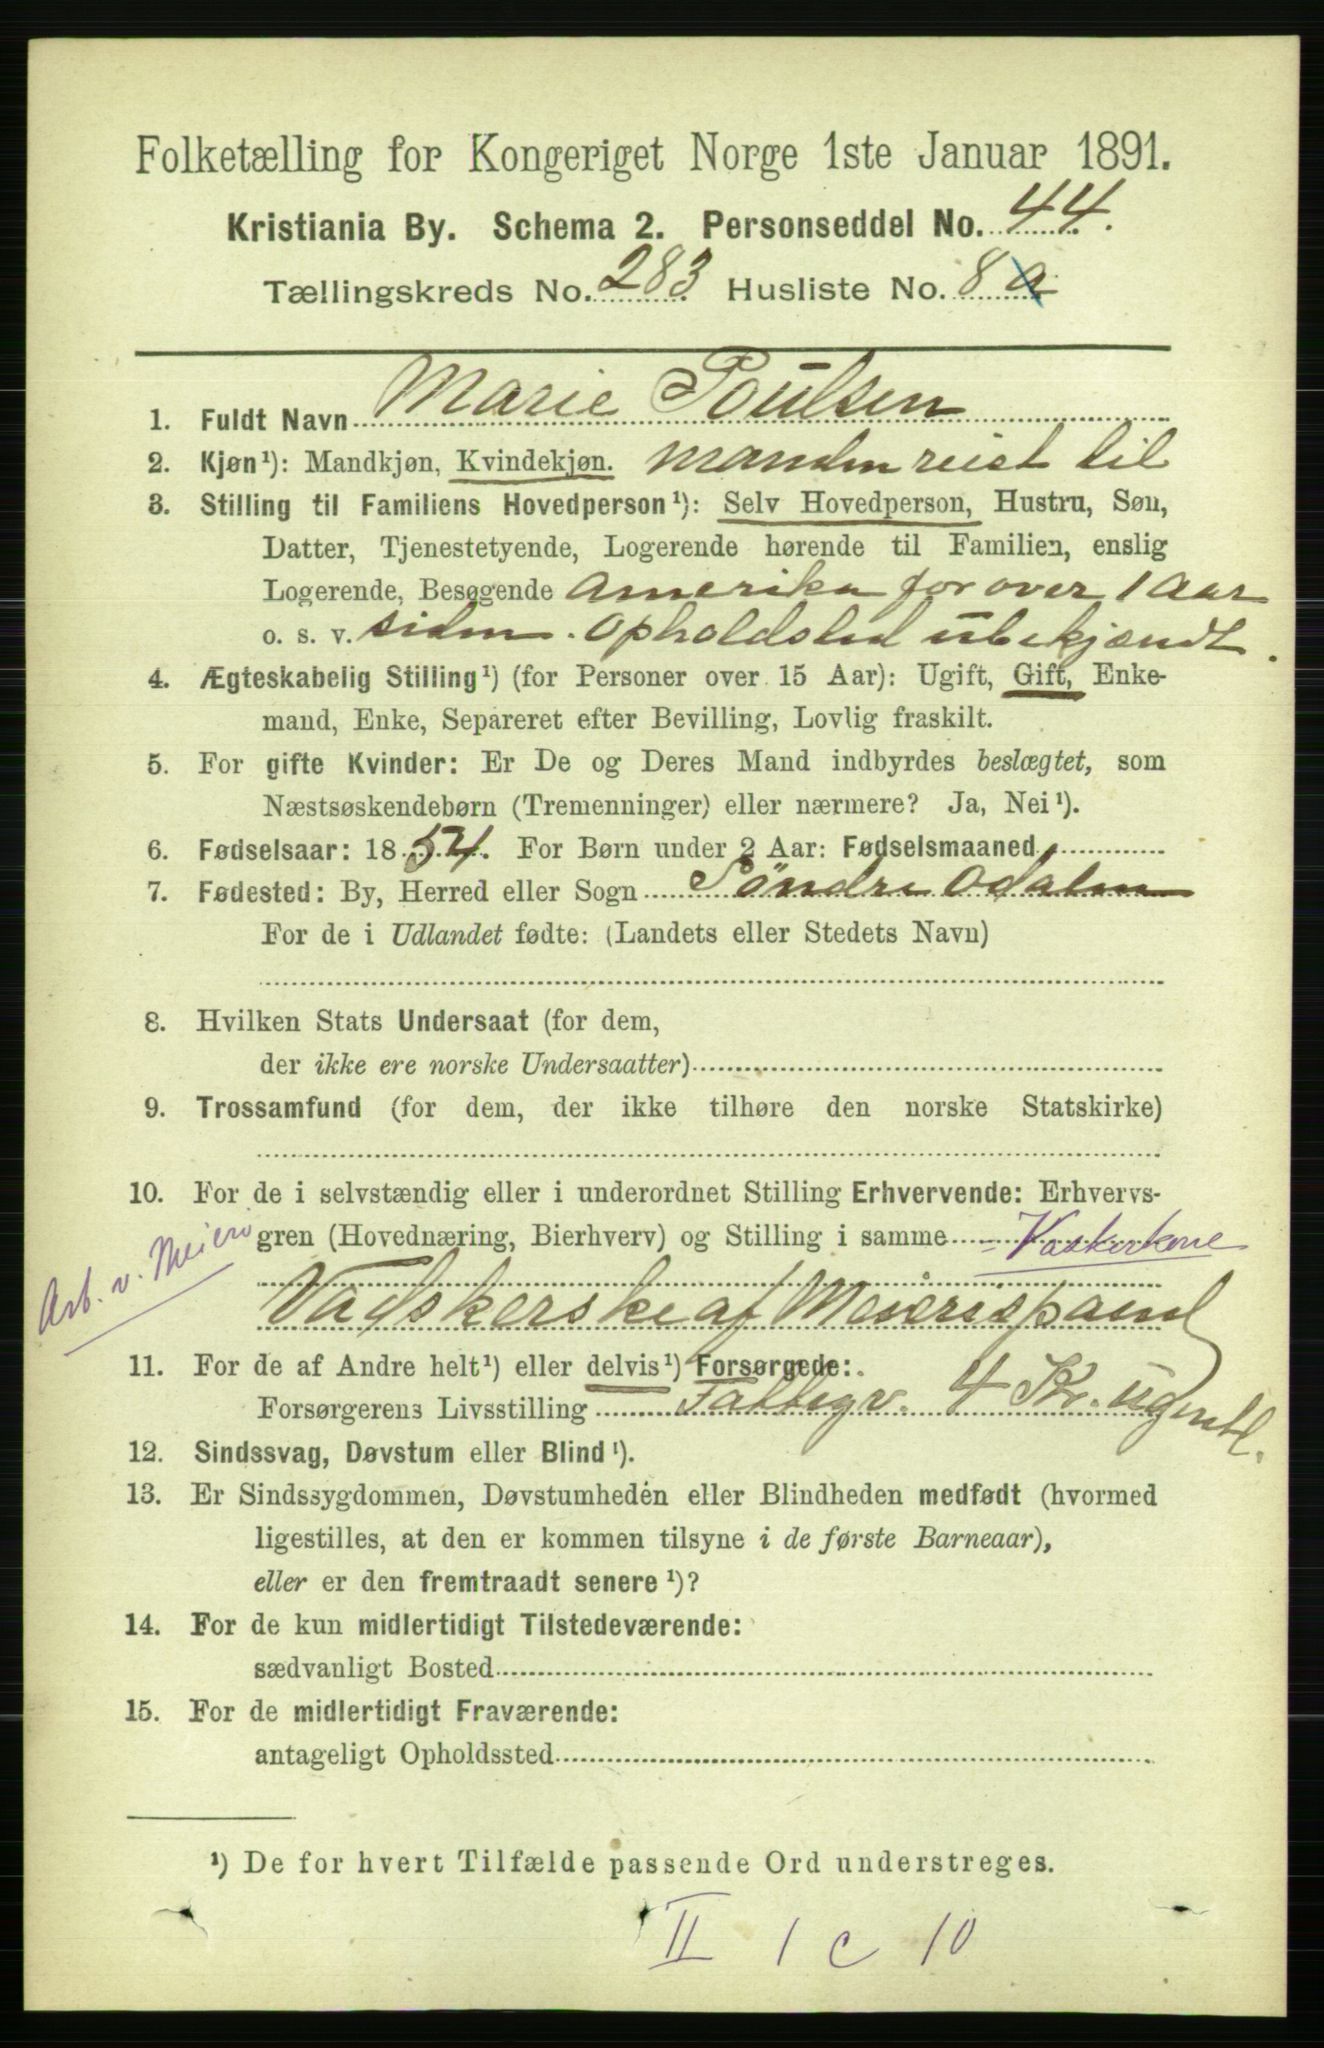 Folketælling for Kongeriget Norge 1ste Januar 1891.
Kristiania By. Schema 2. Personseddel No. 44.
Tællingskreds No. 283 Husliste No. 8 a
1. Fuldt Navn Marie Poulsen
2. Kjøn¹): Mandkjøn, Kvindekjøn. Manden reist til
3. Stilling til Familiens Hovedperson¹): Selv Hovedperson, Hustru, Søn,
Datter, Tjenestetyende, Logerende hørende til Familien, enslig
Logerende, Besøgende Amerika for over 1 Aar
o. s. v. siden. Opholdsted ubekjændt.
4. Ægteskabelig Stilling¹) (for Personer over 15 Aar): Ugift, Gift, Enke-
mand, Enke, Separeret efter Bevilling, Lovlig fraskilt.
5. For gifte Kvinder: Er De og Deres Mand indbyrdes beslægtet, som
Næstsøskendebørn (Tremenninger) eller nærmere? Ja, Nei¹).
6. Fødselsaar: 1854. For Børn under 2 Aar: Fødselsmaaned
7. Fødested: By, Herred eller Sogn Söndre Odalen
For de i Udlandet fødte: (Landets eller Stedets Navn)
8. Hvilken Stats Undersaat (for dem,
der ikke ere norske Undersaatter)
9. Trossamfund (for dem, der ikke tilhøre den norske Statskirke)
10. For de i selvstændig eller i underordnet Stilling Erhvervende: Erhvervs-
gren (Hovednæring, Bierhverv) og Stilling i samme - Vaskerkone
Arb. v. Meieri
Vadskerske af Meierispand
11. For de af Andre helt¹) eller delvis¹) Forsørgede:
Forsørgerens Livsstilling Fattigv. 4 Kr. ugentl.
12. Sindssvag, Døvstum eller Blind¹).
13. Er Sindssygdommen, Døvstumheden eller Blindheden medfødt (hvormed
ligestilles, at den er kommen tilsyne i de første Barneaar),
eller er den fremtraadt senere¹)?
14. For de kun midlertidigt Tilstedeværende:
sædvanligt Bosted
15. For de midlertidigt Fraværende:
antageligt Opholdssted
¹) De for hvert Tilfælde passende Ord understreges.
II 1 c 10